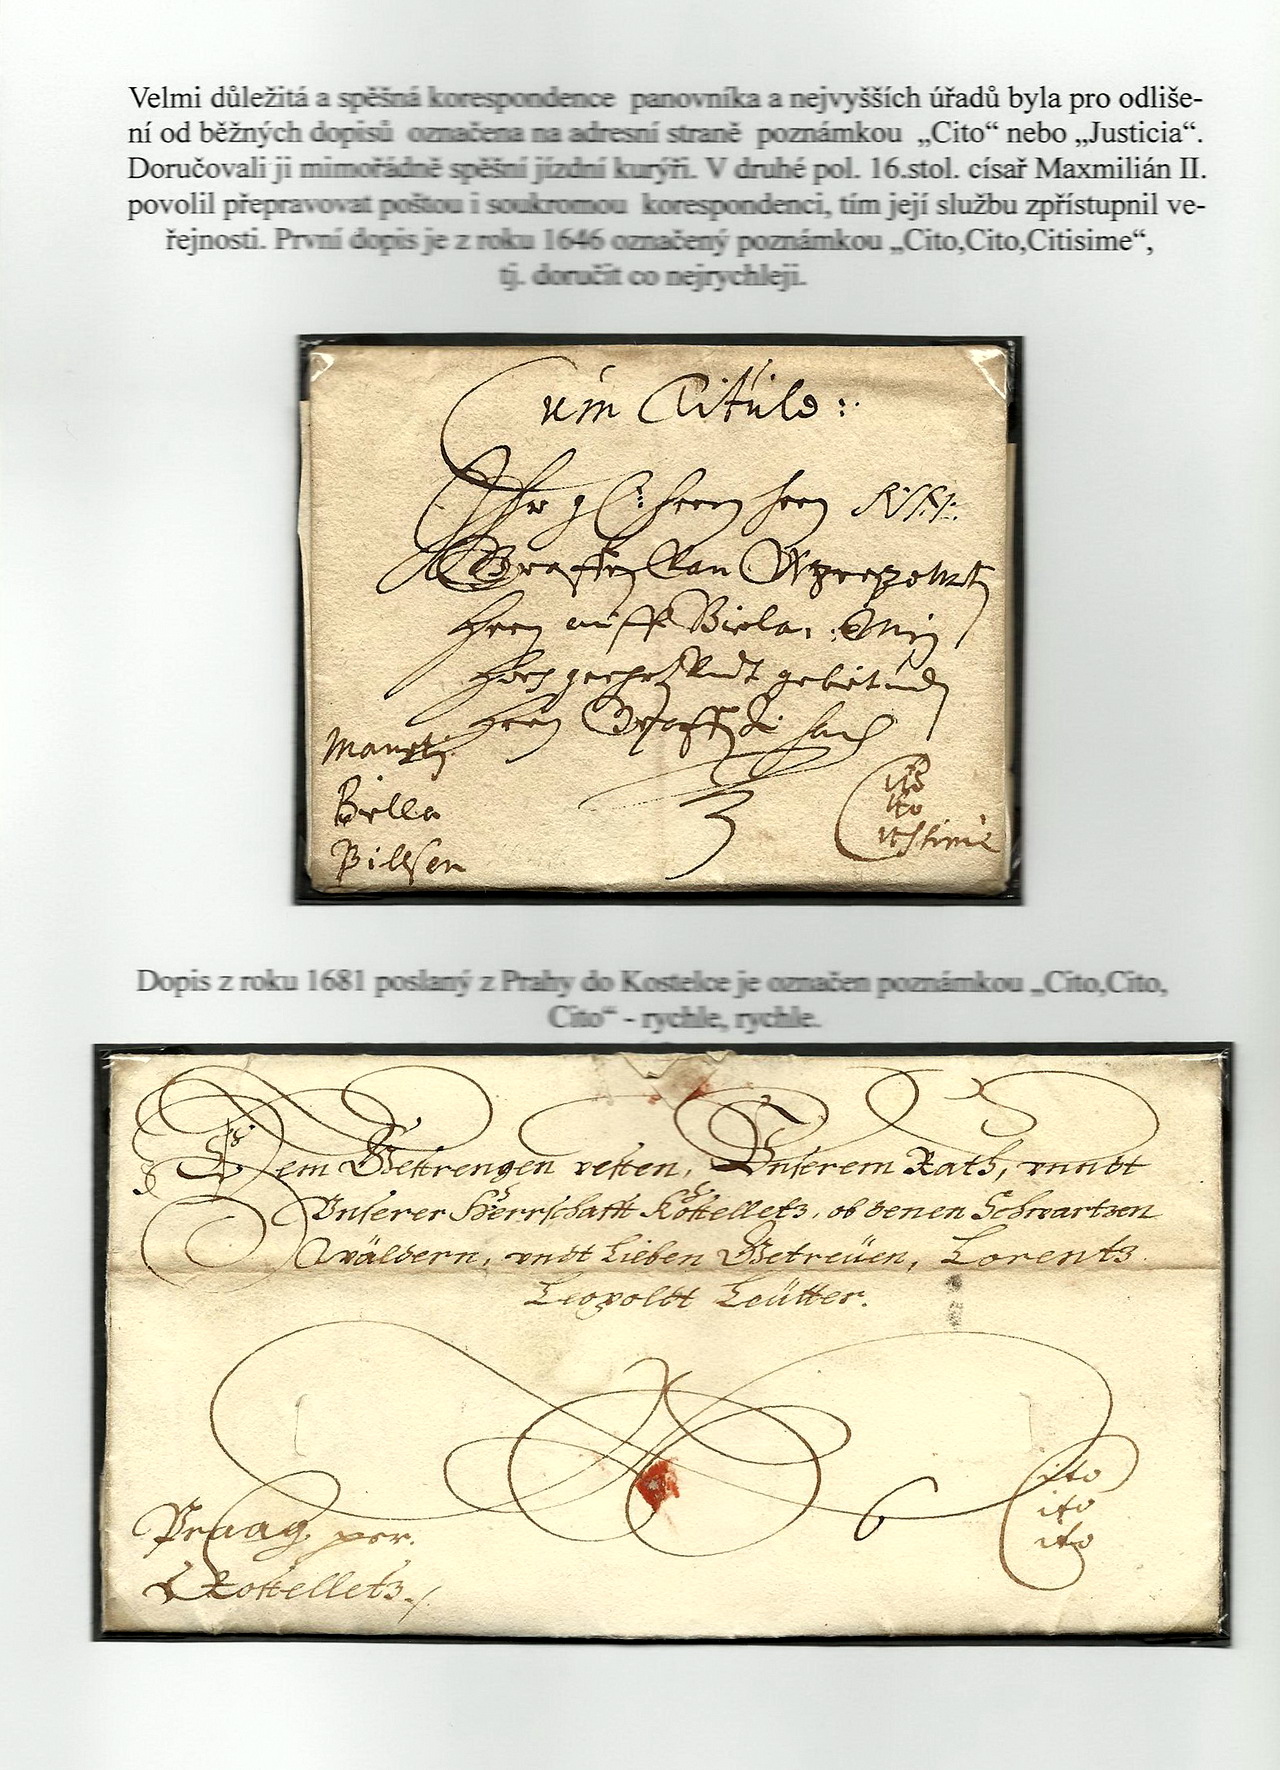 Velmi důležitá a spěšná korespondence panovníka a nejvyšších úřadů byla pro odliše-
ní od běžných dopisů označena na adresní straně poznámkou „Cito“ nebo „Justicia“.
Doručovali ji mimořádně spěšní jízdní kurýři. V druhé pol. 16.stol. císař Maxmilián II.
povolil přepravovat poštou i soukromou korespondenci, tím její službu zpřístupnil ve-
řejnosti. První dopis je z roku 1646 označený poznámkou „Cito,Cito,Citisime“,
tj. doručit co nejrychleji.
Cum Titulo
Graffen Von
Herrn auff Biela
Herrn
Biella
Pillsen
Cito
Cito
Citissime
Dopis z roku 1681 poslaný z Prahy do Kostelce je označen poznámkou „Cito,Cito,
Cito“ - rychle, rychle.
Dem Gestrengen vesten, Unserem Rath, vnndt
Vnserer Herrschafft Kostelletz, ob denen Schwartzen
wäldern, vndt Lieben Getreüen, Lorentz
Leopoldt Leütter.
6
Cito
Cito
Cito
Praag per
Kostelletz